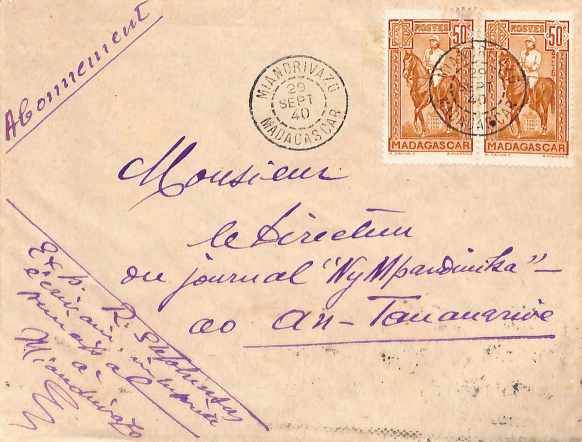 Abonnement
MIANDRIVAZO
29
SEPT
40
MADAGASCAR
50c POSTES
MADAGASCAR
50c POSTES
MADAGASCAR
Monsieur
le Directeur
du journal "Ny Mpandinika"
ao An-Tananarive
Exp. R.
à
Miandrivazo